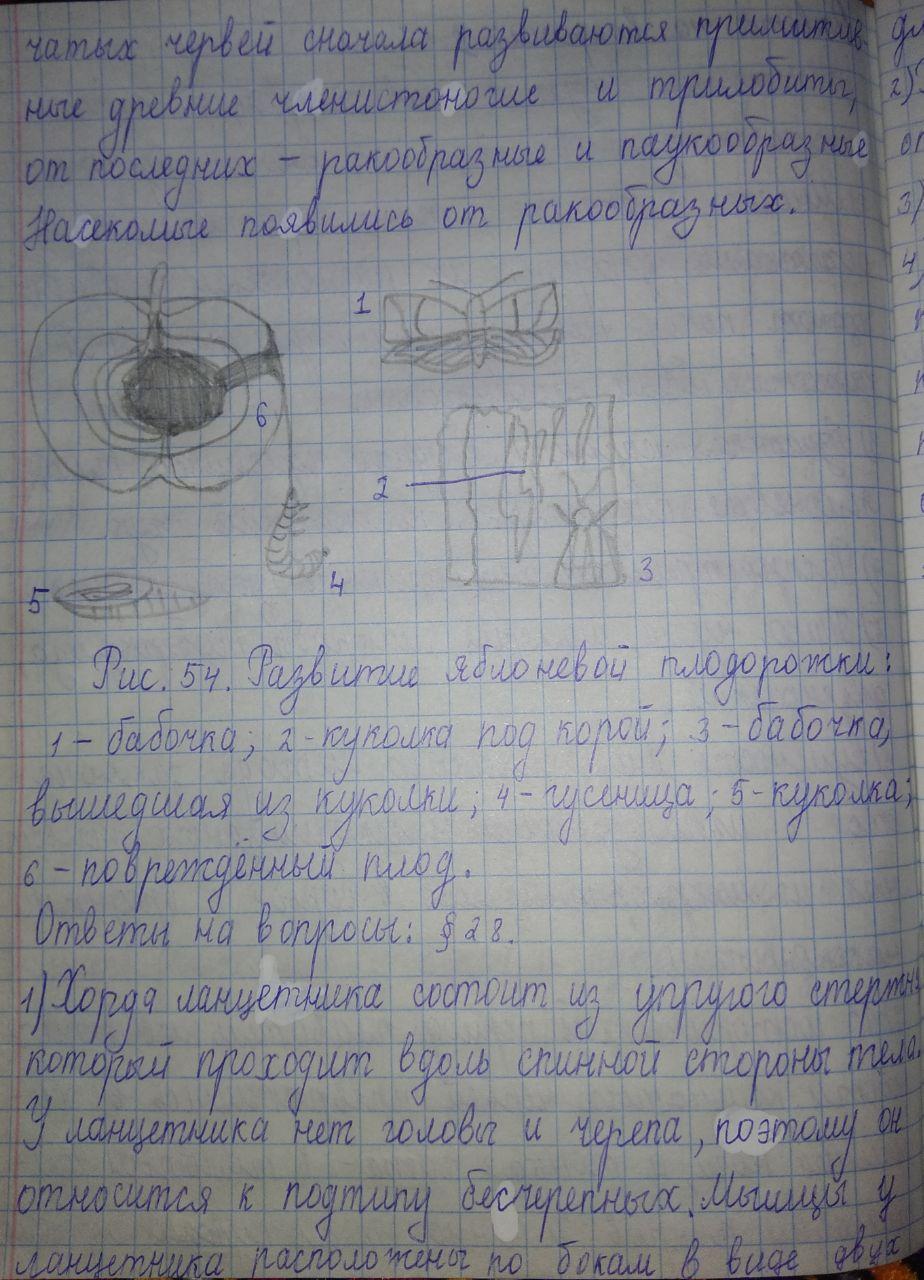 чатых червей сначала развиваются примитив-
ные древние членистоногие и трилобиты,
от последних - ракообразные и паукообразные
Насекомые появились от ракообразных.
1
6
2
3
4
5
Рис. 54. Развитие яблоневой плодорожки:
1 - бабочка; 2 - куколка под корой; 3 - бабочка,
вышедшая из куколки; 4 - гусеница; 5 - куколка;
6 - повреждённый плод.
Ответы на вопросы: § 28.
1) Хорда ланцетника состоит из упругого стержня
который проходит вдоль спинной стороны тела.
У ланцетника нет головы и черепа, поэтому он
относится к подтипу бесчерепных. Мышцы у
ланцетника расположены по бокам в виде двух
2)
3)
4)